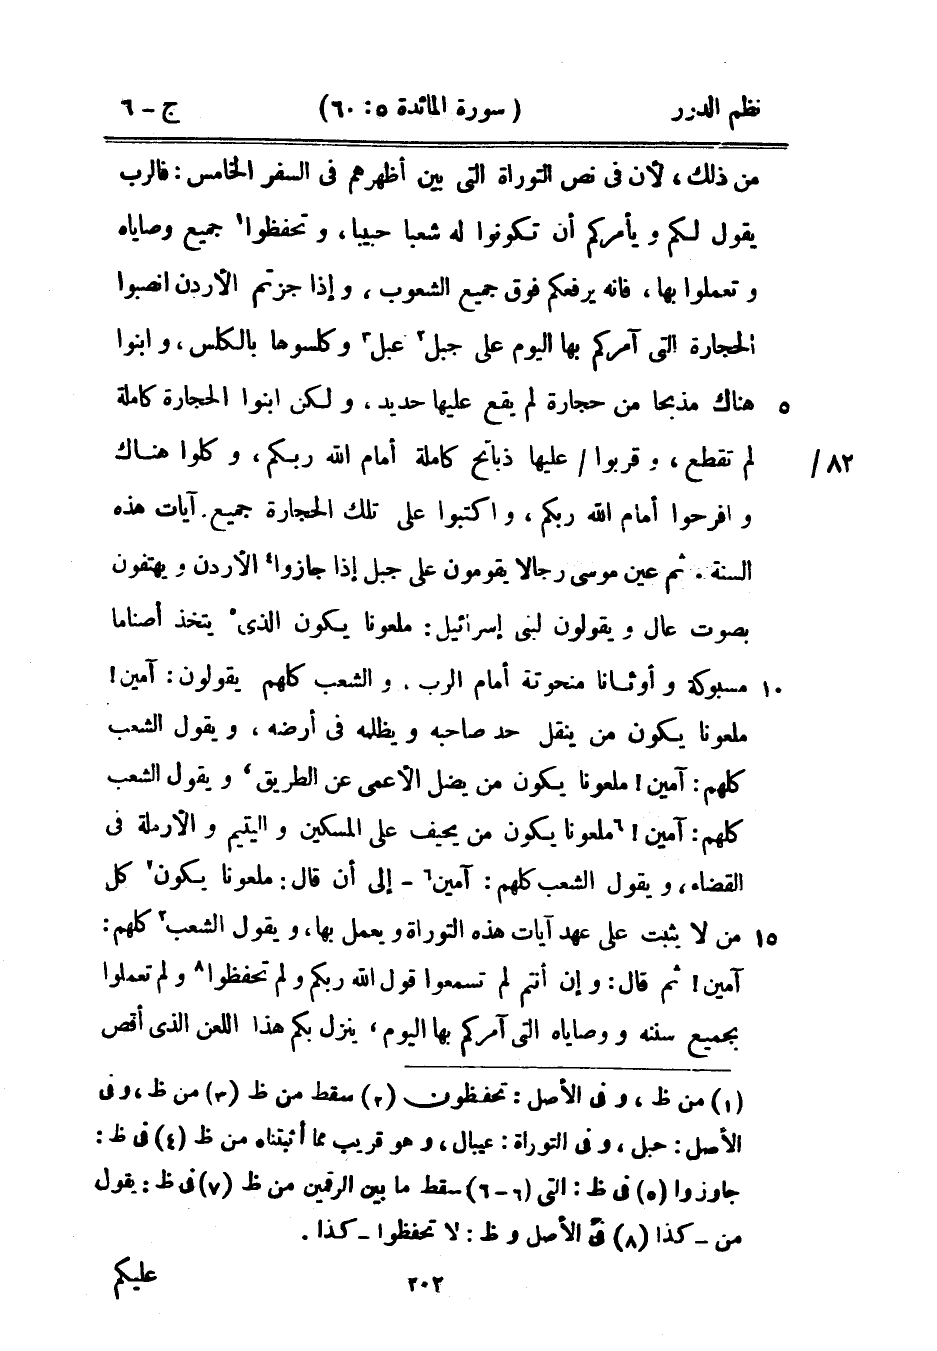 نظم الدرر ( سورة المائدة ٥ : ٦٠ ) ج - ٦
من ذلك ، لأن فى نص التوراة التى بين أظهرهم فى السفر الخامس : فالرب
يقول لكم و يأمركم أن تكونوا له شعبا حبيبا ، و تحفظوا١ جميع وصاياه
و تعملوا بها ، فانه يرفعكم فوق جميع الشعوب ، و إذا جزتم الأردن انصبوا
الحجارة التى آمركم بها اليوم على جبل٢ عبل٣ و كلسوها بالكلس ، و ابنوا
٥ هناك مذبحا من حجارة لم يقع عليها حديد ، و لكن ابنوا الحجارة كاملة
٨٢/ لم تقطع ، و قربوا / عليها ذبائح كاملة أمام الله ربكم ، و كلوا هناك
و افرحوا أمام الله ربكم ، و اكتبوا على تلك الحجارة جميع آيات هذه
السنة . ثم عين موسى رجالا يقومون على جبل إذا جازوا٤ الأردن و يهتفون
بصوت عال و يقولون لبنى إسرائيل : ملعونا يكون الذى٥ يتخذ أصناما
١٠ مسبوكة و أوثانا منحوتة أمام الرب ، و الشعب كلهم يقولون : آمين !
ملعونا يكون من ينقل حد صاحبه و يظلمه فى أرضه ، و يقول الشعب
كلهم : آمين ! ملعونا يكون من يضل الأعمى عن الطريق ، و يقول الشعب
كلهم : آمين ! ٦ملعونا يكون من يحيف على المسكين و اليتيم و الأرملة فى
القضاء ، و يقول الشعب كلهم : آمين٦ - إلى أن قال : ملعونا يكون٧ كل
١٥ من لا يثبت على عهد آيات هذه التوراة و يعمل بها ، و يقول الشعب٢ كلهم :
آمين ! ثم قال : و إن أنتم لم تسمعوا قول الله ربكم و لم تحفظوا٨ و لم تعملوا
بجميع سننه و وصاياه التى آمركم بها اليوم ، ينزل بكم هذا اللعن الذى أقص
(١) من ظ ، و فى الأصل : تحفظون (٢) سقط من ظ (٣) من ظ ، و فى
الأصل : حبل ، و فى التوراة : عيبال ، و هو قريب مما أثبتناه من ظ (٤) فى ظ :
جاوزوا (٥) فى ظ : التى (٦-٦) سقط ما بين الرقمين من ظ (٧) فى ظ : يقول
من - كذا (٨) فى الأصل و ظ : لا تحفظوا - كذا .
٢٠٢ عليكم